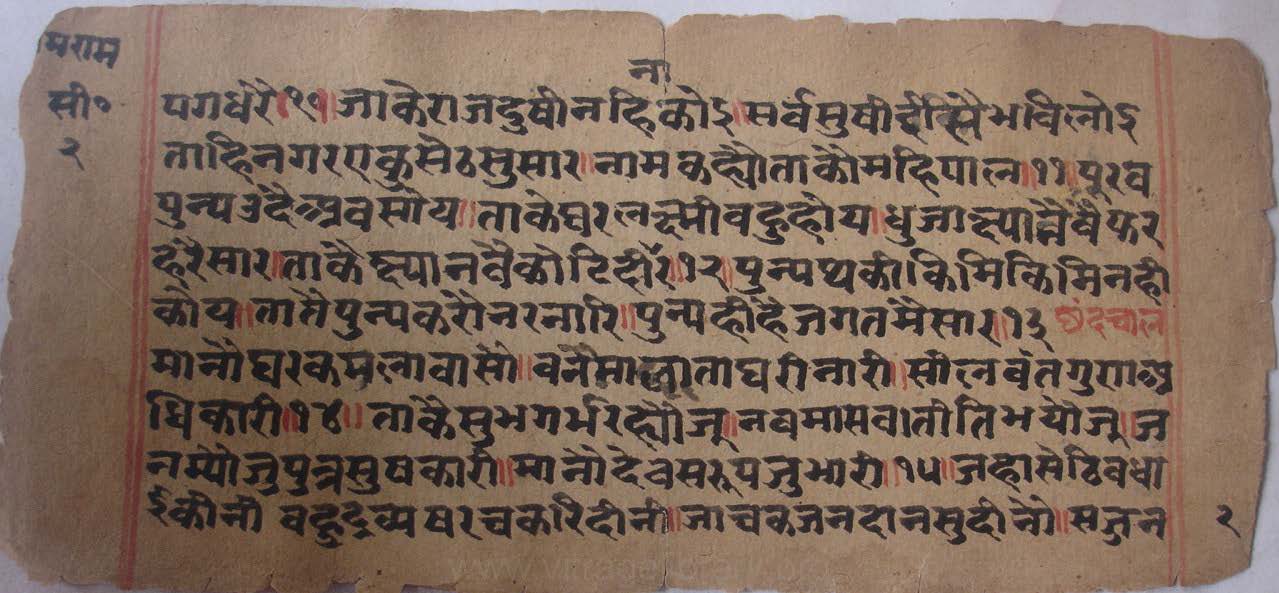 मराम
सी०
२
ना
पगधरै१९॥जाकेराजदुषीनहिकोइ॥सर्वसुषी भविलोइ
ताहिनगरएकुसेठसुसार॥नामकह्यौताकौमहिपाल॥११॥पूरव
पुन्यउदैअवसोय॥ताकेघरलक्ष्मीवहुहोय॥धुजा फर
हरैसार॥ताकै कोटिदीर॥१२॥पुन्यथकीकिमिकिमिनही
कोय॥तातैपुन्यकरौनरनारि॥पुन्यहीहैजगतमैसार॥१३ छंदचाल
मानौघरकमलावासौ॥वनैमालाताघरीनारी॥सीलवंतगुराअ
धिकारी॥१४॥ताकैसुभगर्भरह्यौजू॥नवमासवातीतिभयोजू॥ज
नम्यौजुपुत्रसुषकारी॥मानौदेवसरुपजुभारी॥१५॥जहासेठिवधा
ईकीनी वहुद्रव्यषरचकरिदीनी॥जाचकजनदानसुदीनो॥सजुन
२